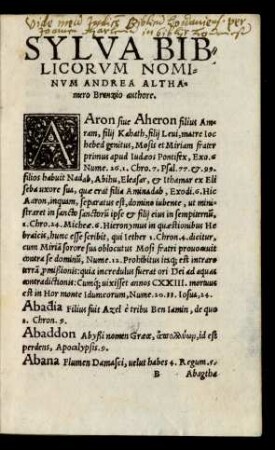 SYLVA BIB-
LICORVM NOMI-
NVM ANDREA ALTHA-
mero Brenzio authore.
AAron siue Aheron filius Am-
ram, filij Kahath, filij Leui, matre Io-
chebed genitus, Mosis et Miriam frater
primus apud Iudaos Pontifex, Exo.
Nume. 26. 1. Chro. 7. Psal. 77. & 99.
filios habuit Nadab, Abihu, Eleasar, & Ithamar ex Eli
seba uxore sua, quæ erat filia Aminadab, Exodi. 6. Hic
Aaron, inquam, separatus est, domino iubente, ut mini-
straret in sancto sanctorũ ipse & filij eius in sempiternũ,
1. Chro. 24. Micheæ. 6. Hieronymus in quæstionibus He
braicis, hunc esse scribit, qui Iether 1. Chron. 4. dicitur,
cum Miriã sorore sua oblocutus Mosi fratri prouocauit
contra se dominũ, Nume. 12. Prohibitus isq; est intrare
terrã p̃missionis: quia incredulus fuerat ori Dei ad aquas
contradictionis: Cumq; uixisset annos CXXIII. mortuus
est in Hor monte Idumæorum, Nume. 20. 33. Iosuæ, 24.
Abadia Filius fuit Azel è tribu Ben Iamin, de quo
1. Chron. 9.
Abaddon Abyssi nomen Græce, ἀπολλύωρ, id est
perdens, Apocalypsis. 9.
Abana Flumen Damasci, uelut habes 4. Regum. 5.
B Abagtha